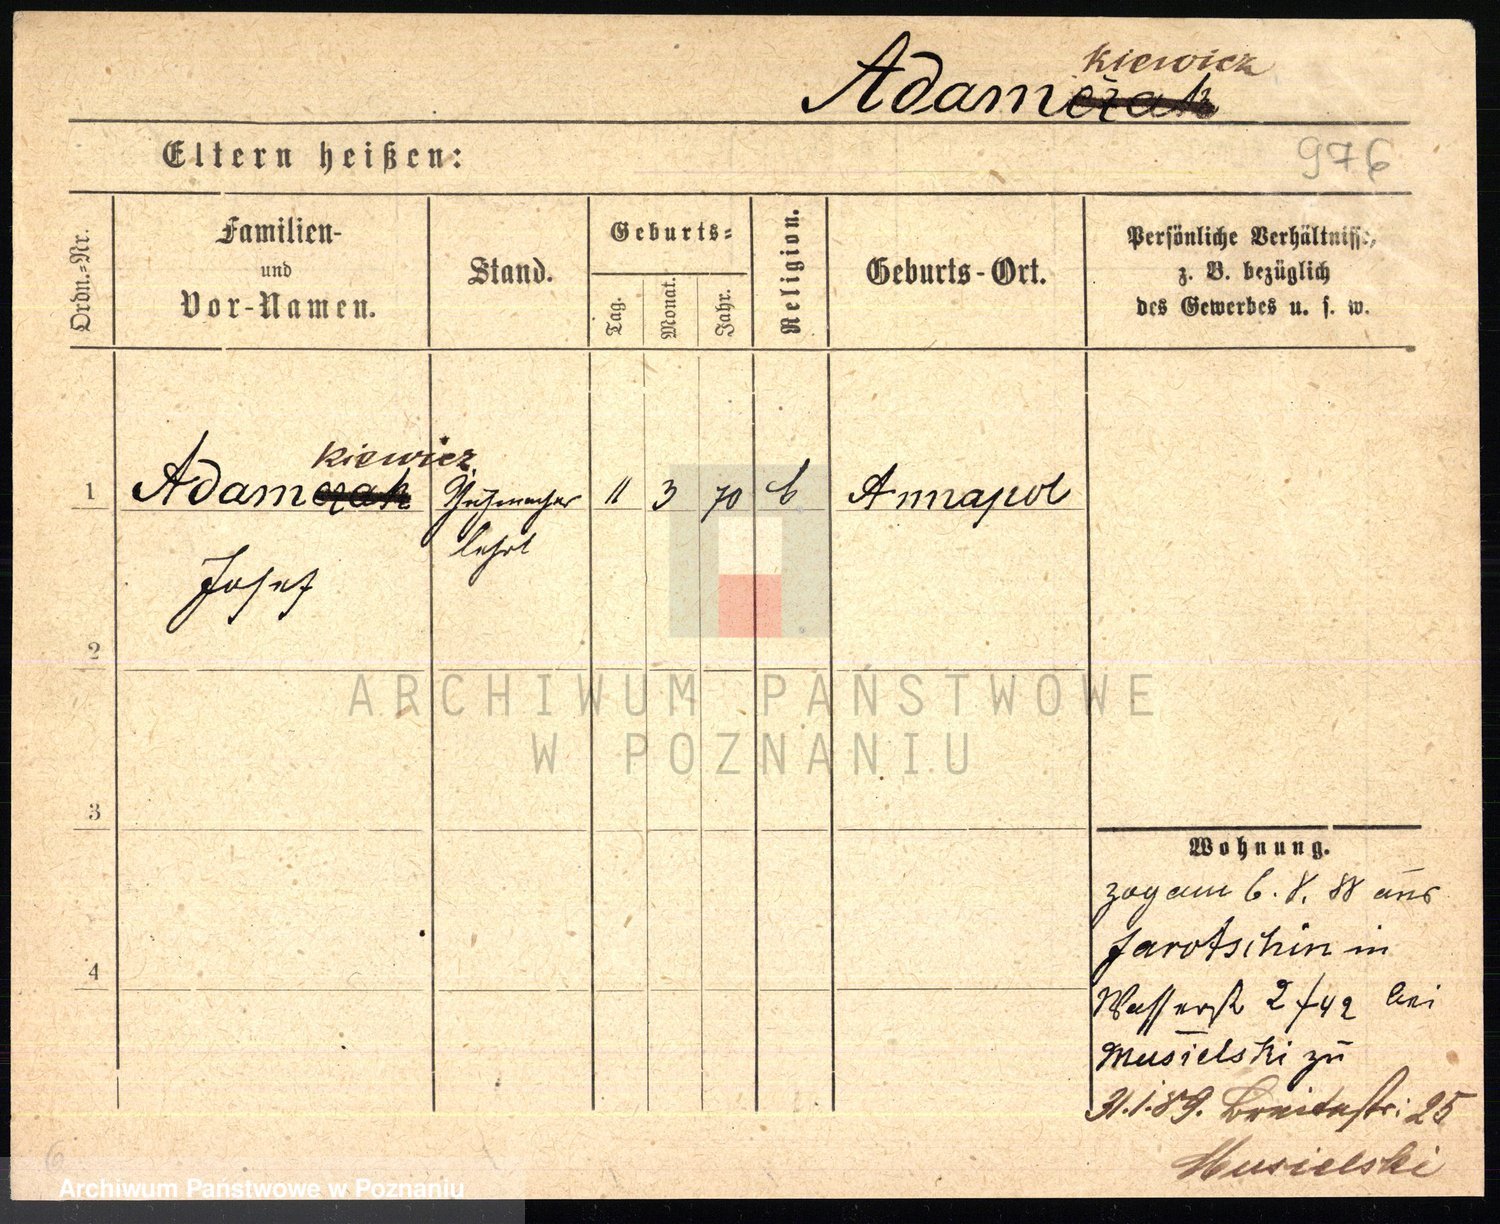 kiewicz
Adamczak
Eltern heißen:
976
Ordn.=Nr.
Familien-
und
Vor-Namen.
Stand.
Geburts=
Tag.
Monat.
Jahr.
Religion.
Geburts-Ort.
Persönliche Verhältnisse,
z. B. bezüglich
des Gewerbes u. s. w.
kiewicz
1 Adamczak Schuhmacher 11 3 70 Annapol
lehrl
Josef
2
ARCHIWUM PAŃSTWOWE
W POZNANIU
3
Wohnung.
zog am 6. 8. 88 aus
Jarotschin in
4
Wasserstr 2 /42 bei
Musielski zu
31.1.89. Breitestr: 25
Musielski
Archiwum Państwowe w Poznaniu